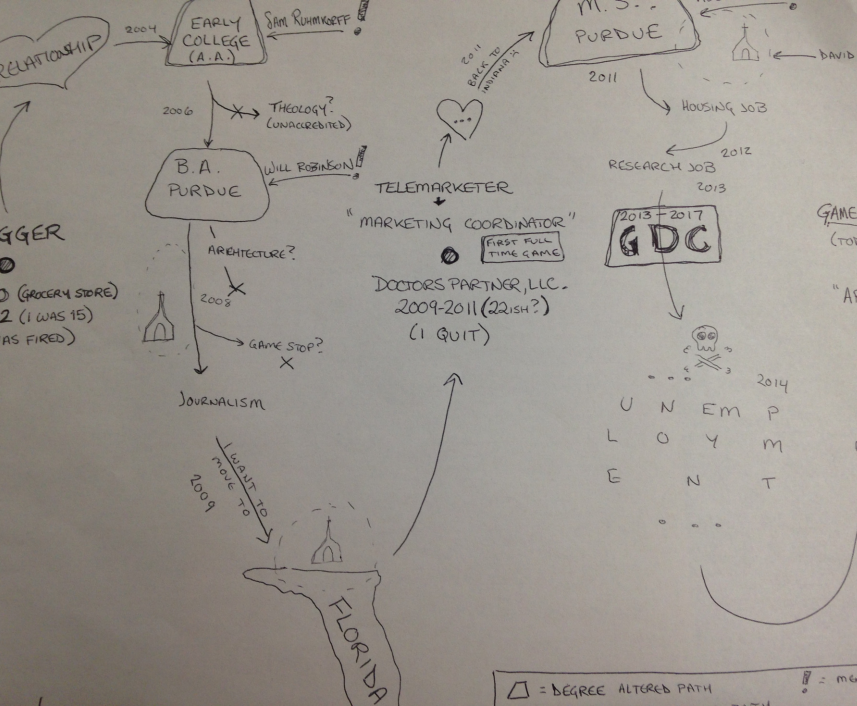 RELATIONSHIP
2004
EARLY
COLLEGE
(A.A.)
SAM RUHMKORFF
2006
THEOLOGY?
(UNACCREDITED)
B.A.
PURDUE
WILL ROBINSON
ARCHTECTURE?
2008
GAME STOP?
JOURNALISM
I WANT TO
MOVE TO
2009
FLORIDA
GGER
(GROCERY STORE)
2 (I WAS 15)
AS FIRED)
TELEMARKETER
"MARKETING COORDINATOR"
FIRST FULL
TIME GAME
DOCTORS PARTNER, LLC.
2009-2011 (22ISH?)
(I QUIT)
...
2011
BACK TO
INDIANA
M.S.
PURDUE
2011
DAVID
HOUSING JOB
2012
RESEARCH JOB
2013
2013-2017
GDC
2014
...
UNEMP
LOYM
ENT
...
GAME
(TO
"A
= DEGREE ALTERED PATH
! = ME